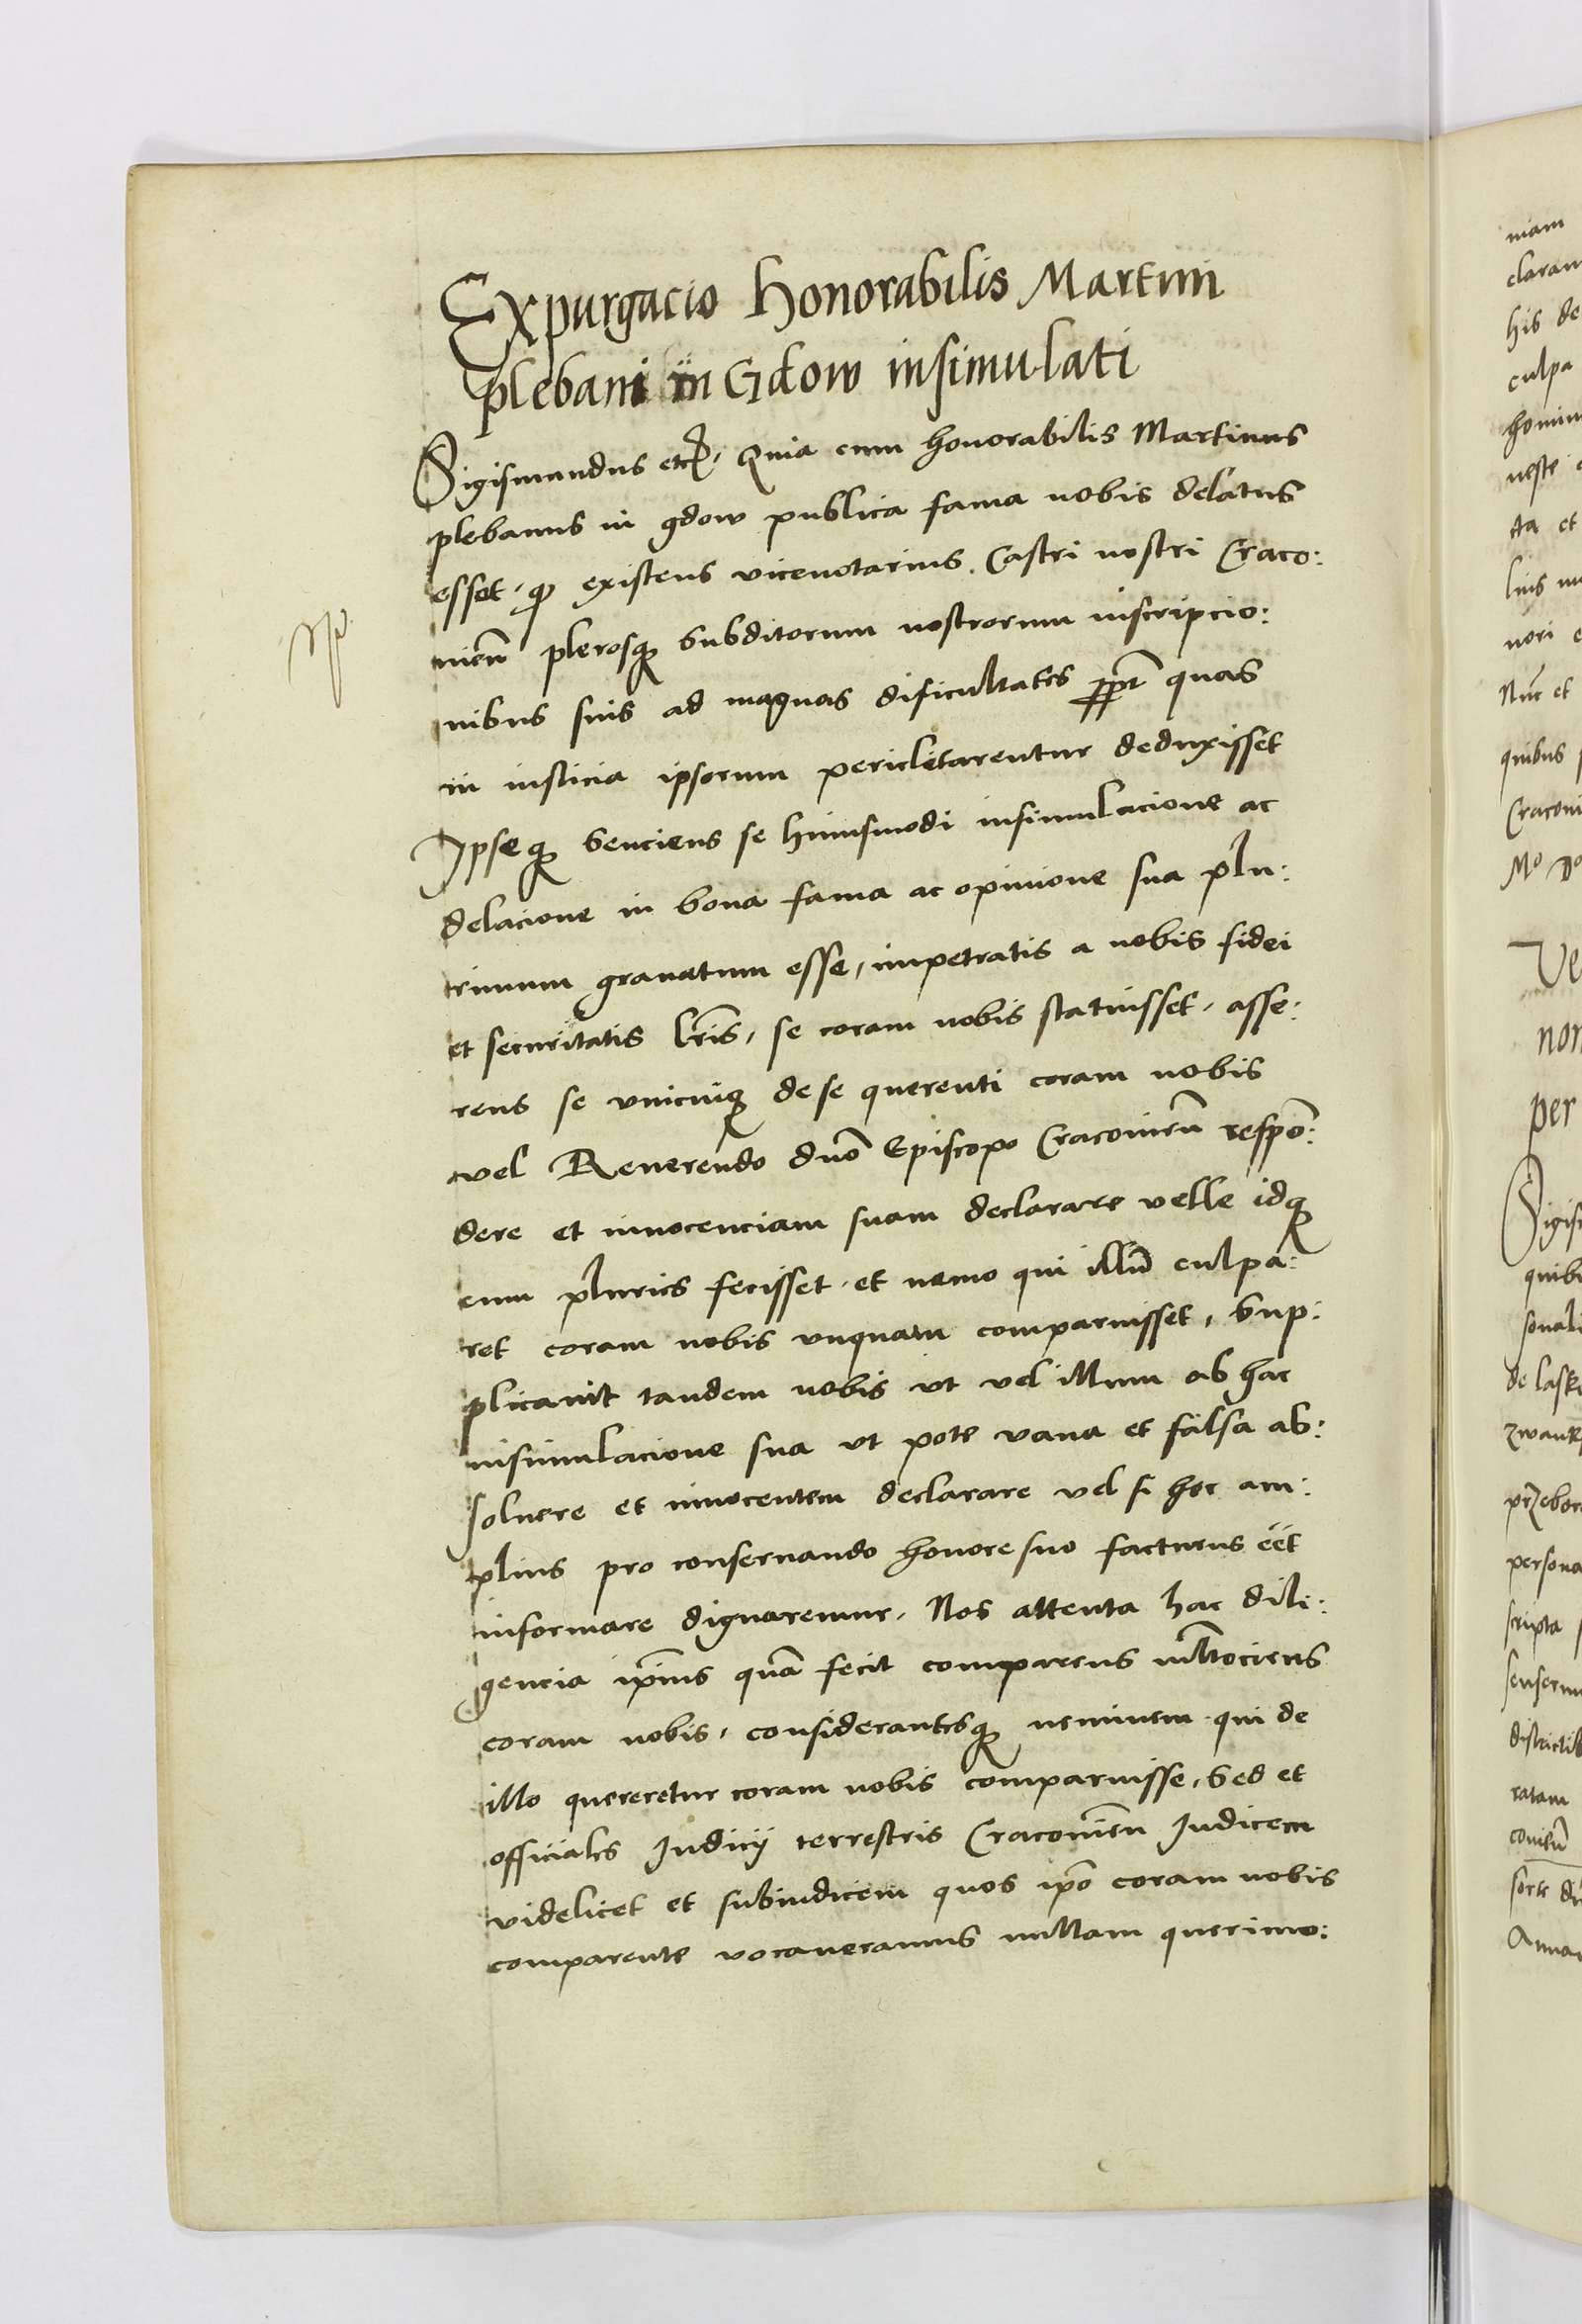 Expurgacio Honorabilis Martini
plebani in Gdow insimulati
Sigismundus etc. Quia cum honorabilis Martinus
plebanus in gdow publica fama nobis delatus
esset, qz existens vicenotarius Castri nostri Craco:
nieñ plerosqz subditorum nostrorum inscripcio:
nibus suis ad magnas dificultates ppt quas
in iusticia ipsorum periclitarentur deduxisset
Ipseqz senciens se huiusmodi insimulacione ac
delacione in bona fama ac opinione sua plu:
rimum grauatum esse, impetratis a nobis fidei
et securitatis lris, se coram nobis statuisset, asse:
rens se vnicuiqz de se querenti coram nobis
vel Reuerendo dno Episcopo Cracouieñ respõ:
dere et innocenciam suam declarare velle idqz
cum pluries fecisset, et nemo qui illũ culpa:
ret coram nobis vnquam comparuisset, Sup:
plicauit tandem nobis vt vel illum ab hac
insimulacione sua vt pote vana et falsa ab:
soluere et innocentem declarare vel si hoc am:
plius pro conseruando honore suo facturus eet
informare dignaremur, Nos attenta hac dili:
gencia ipius quã fecit comparens multociens
coram nobis, considerantesqz neminem qui de
illo quereretur coram nobis comparuisse, Sed et
officiales Iudicij terrestris Cracouieñ Iudicem
videlicet et subiudicem quos ipo coram nobis
comparente vocaueramus nullam querimo:
niam
claran
his de
culpa
homin
neste
ta et
nori
Nuc et
quibus
Cracoui
Ve
non
per
Sigis
quib
sonali
de lask
persona
scripta
ratam